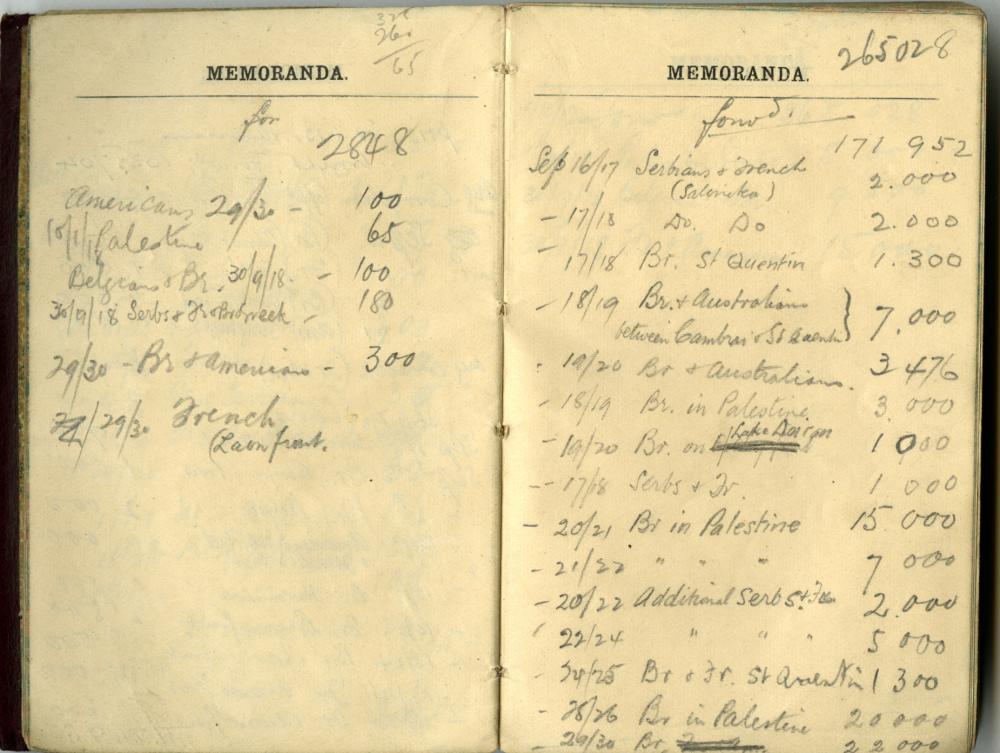 260
65
MEMORANDA.
for
2848
Americans 29/30 - 100
Palestine 65
Belgians & Br. 30/9/18 - 100
30/9/18 Serbs & Fr & Br & Greek - 180
29/30 - Br & Americans - 300
29/30 French
(Laon front.
265028
MEMORANDA.
forwd.
171 952
Sep 16/17 Serbians & French 2.000
(Salonika)
- 17/18 Do. Do 2.000
- 17/18 Br. St Quentin 1.300
- 18/19 Br. & Australians
between Cambrai & St Quentin } 7.000
- 19/20 Br & Australians. 3 476
- 18/19 Br. in Palestine 3 000
- 19/20 Br. on Lake Doiran 1 000
- 17/18 Serbs & Fr. 1 000
- 20/21 Br in Palestine 15 000
- 21/22 " " " 7 000
- 20/22 Additional Serbs & Fr 2.000
22/24 " " " 5 000
- 24/25 Br & Fr. St Quentin 1 300
- 26 Br in Palestine 20 000
29/30 Br. 22 000